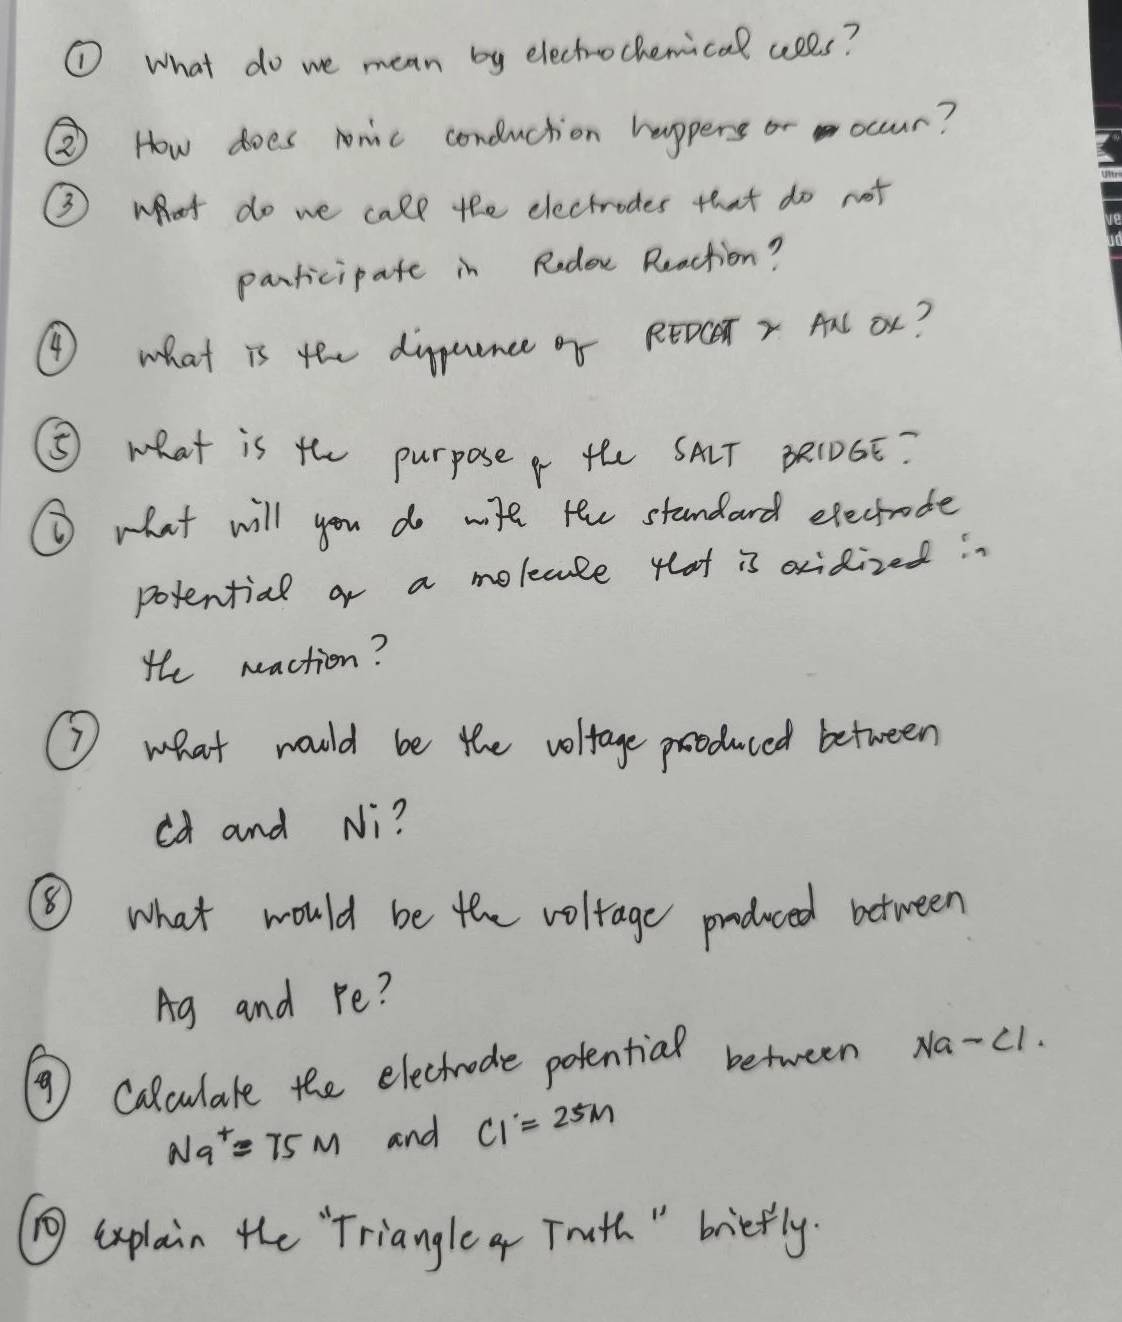 ① What do we mean by electrochemical cells?
② How does ionic conduction happens or occur?
③ What do we call the electrodes that do not
participate in Redox Reaction?
④ what is the difference of REDCAT & AN OX?
⑤ what is the purpose of the SALT BRIDGE?
⑥ what will you do with the standard electrode
potential of a molecule that is oxidized in
the reaction?
⑦ what would be the voltage produced between
Cd and Ni?
⑧ what would be the voltage produced between
Ag and Fe?
⑨ Calculate the electrode potential between Na-Cl.
Na⁺ = 75 M and Cl⁻ = 25M
⑩ Explain the "Triangle of Truth" briefly.